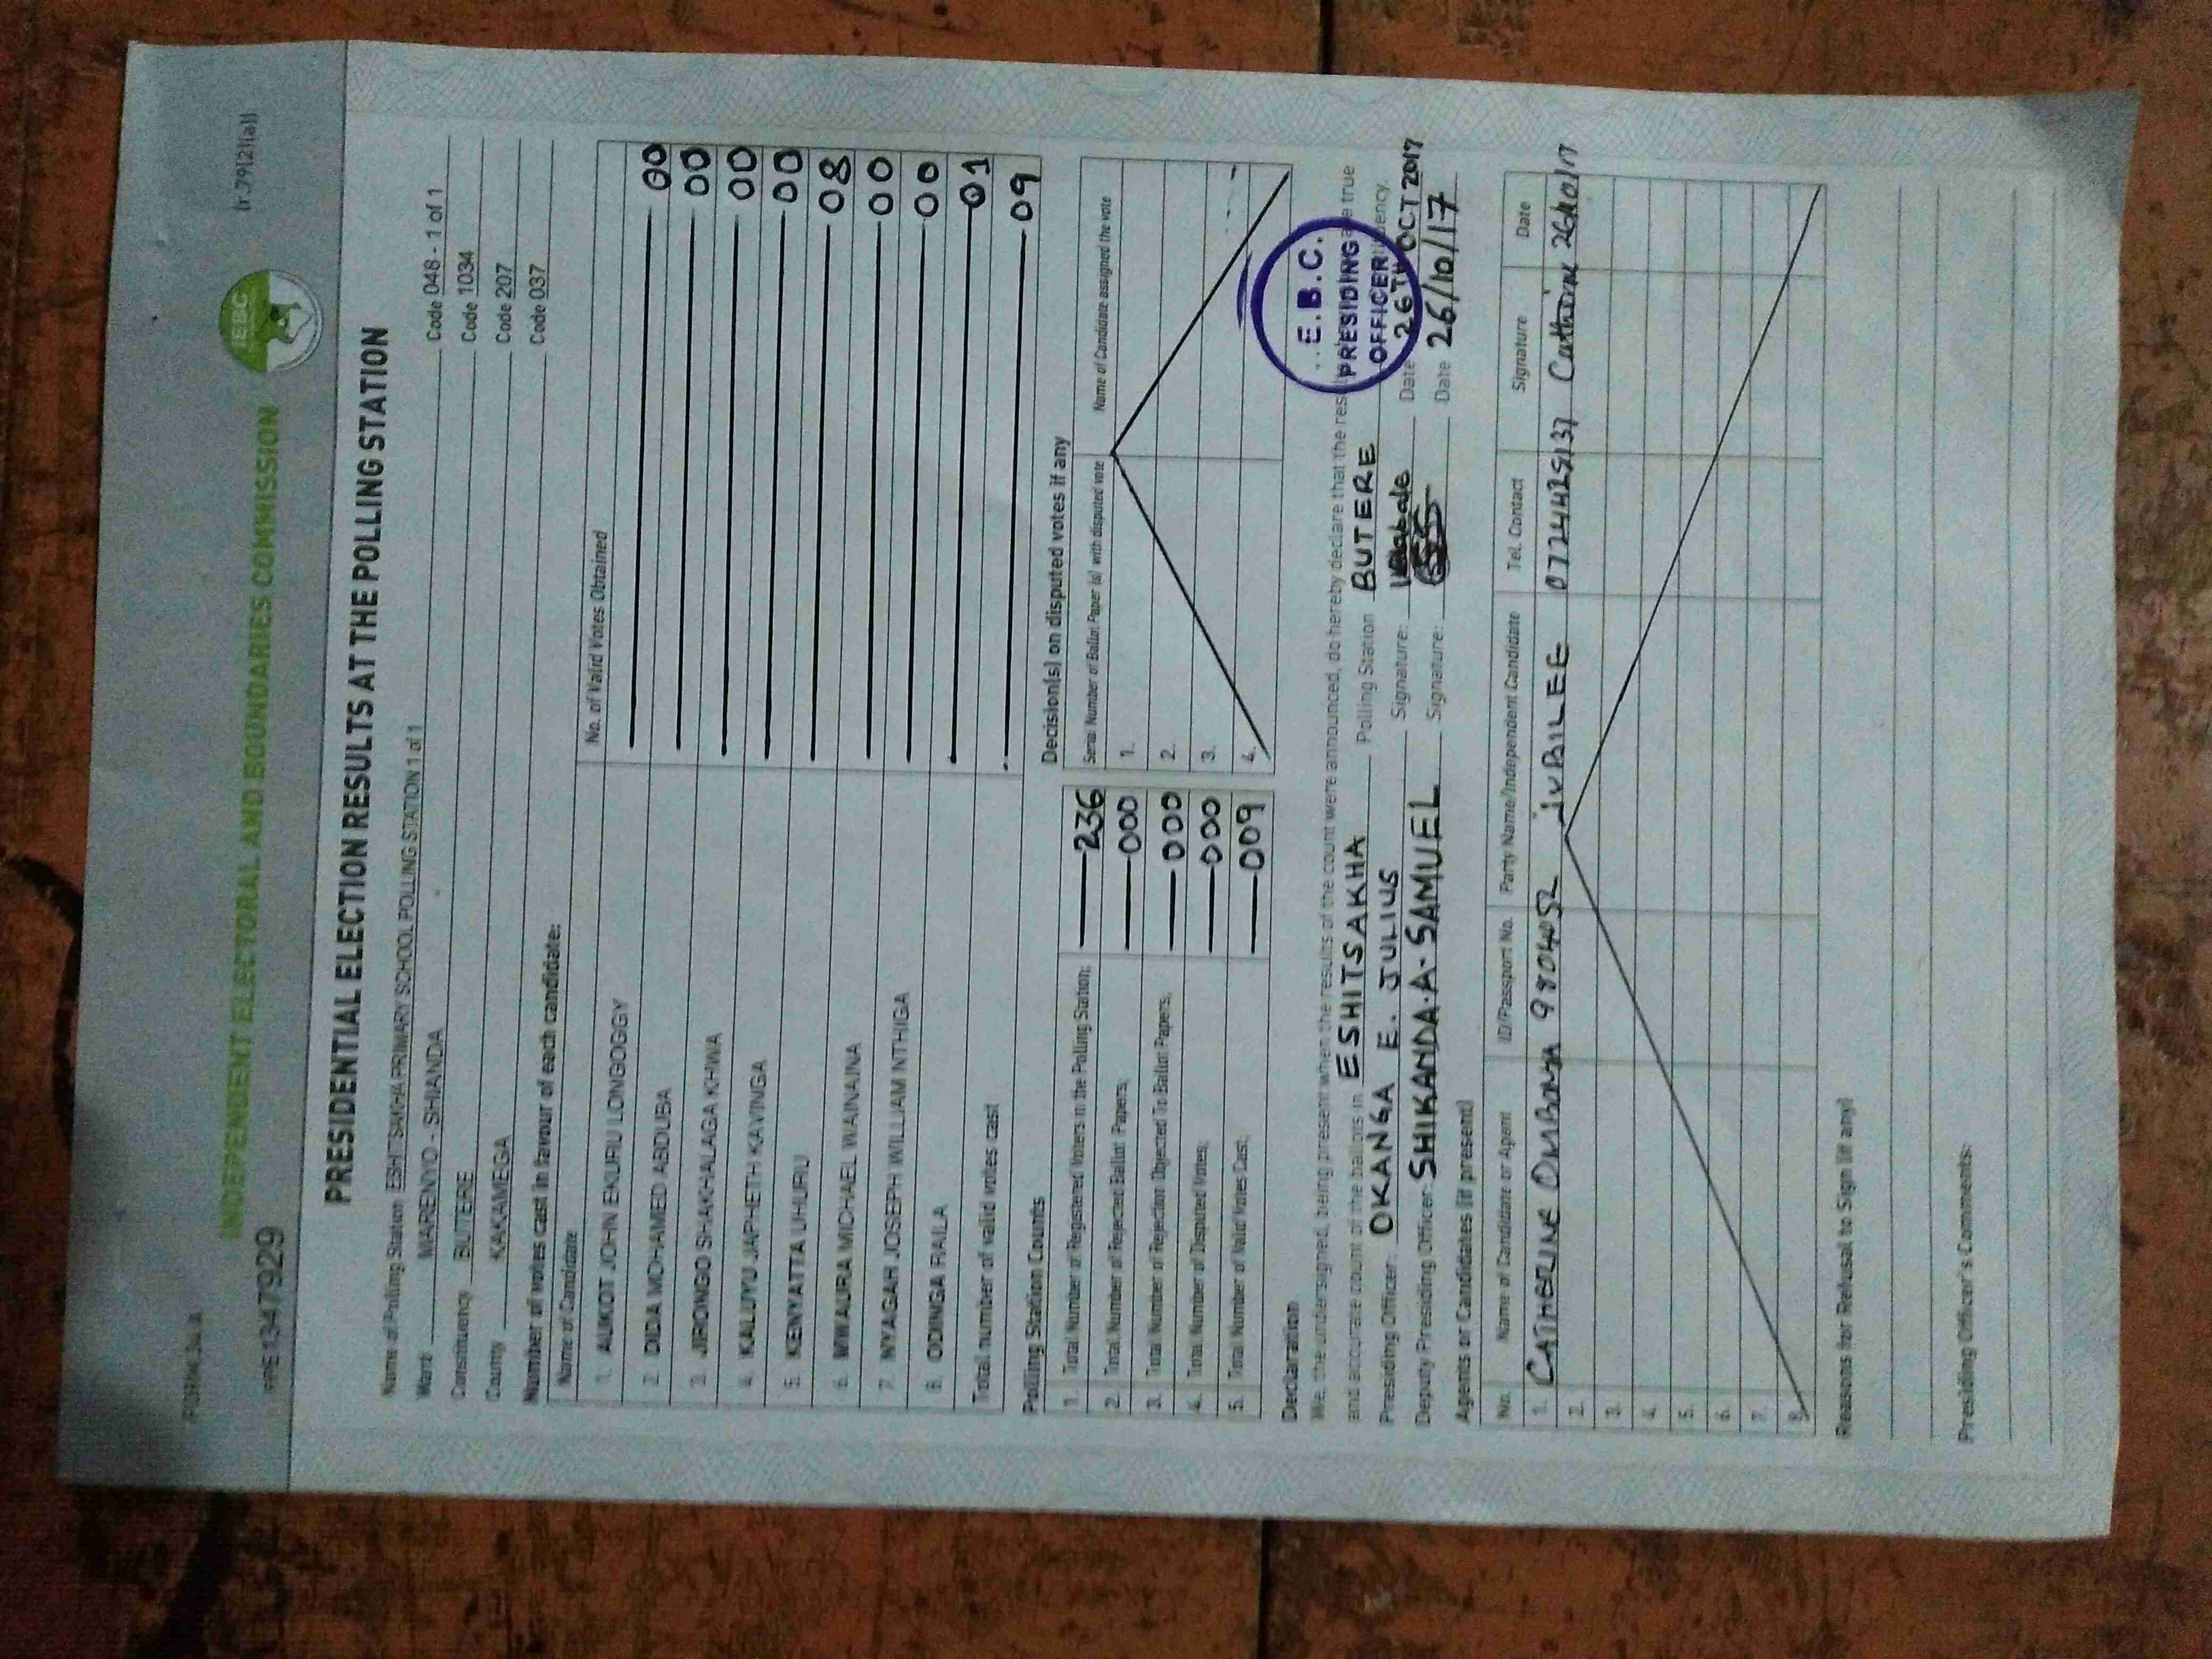 FORM 34 A
(r.79(2)(a))
INDEPENDENT ELECTORAL AND BOUNDARIES COMMISSION
IEBC
PRESIDENTIAL ELECTION RESULTS AT THE POLLING STATION
Name of Polling Station ESHITSAKHA PRIMARY SCHOOL POLLING STATION 1 of 1 Code 048 - 1 of 1
Ward MARENYO - SHIANDA Code 1034
Constituency BUTERE Code 207
County KAKAMEGA Code 037
Number of votes cast in favour of each candidate:
Name of Candidate No. of Valid Votes Obtained
1. AUKOT JOHN EKURU LONGOGGY 00
2. DIDA MOHAMED ABDUBA 00
3. JIRONGO SHAKHALAGA KHWA 00
4. KALUYU JAPHETH KAVINGA 00
5. KENYATTA UHURU 08
6. MWAURA MICHAEL WAINAINA 00
7. NYAGAH JOSEPH WILLIAM NTHIGA 00
8. ODINGA RAILA 01
Total number of valid votes cast 09
Polling Station Counts
1. Total Number of Registered Voters in the Polling Station: 236
2. Total Number of Rejected Ballot Papers: 000
3. Total Number of Rejection Objected To Ballot Papers: 000
4. Total Number of Disputed Votes: 000
5. Total Number of Valid Votes Cast: 009
Decision(s) on disputed votes if any
Serial Number of Ballot Paper (s) with disputed vote Name of Candidate assigned the vote
1.
2.
3.
4.
Declaration
We, the undersigned, being present when the results of the count were announced, do hereby declare that the true
and accurate count of the ballots in ESHITSAKHA Polling Station BUTERE
Presiding Officer: OKANGA E. JULIUS Signature: Date 26TH OCT 2017
Deputy Presiding Officer: SHIKANDA.A. SAMUEL Signature: Date 26/10/17
E.B.C.
PRESIDING
OFFICER
Agents or Candidates (if present)
No. Name of Candidate or Agent ID/Passport No. Party Name/Independent Candidate Tel. Contact Signature Date
1. CATHERINE JUBILEE Catherine
2.
3.
4.
5.
6.
7.
8.
Reasons for Refusal to Sign (if any)
Presiding Officer's Comments: